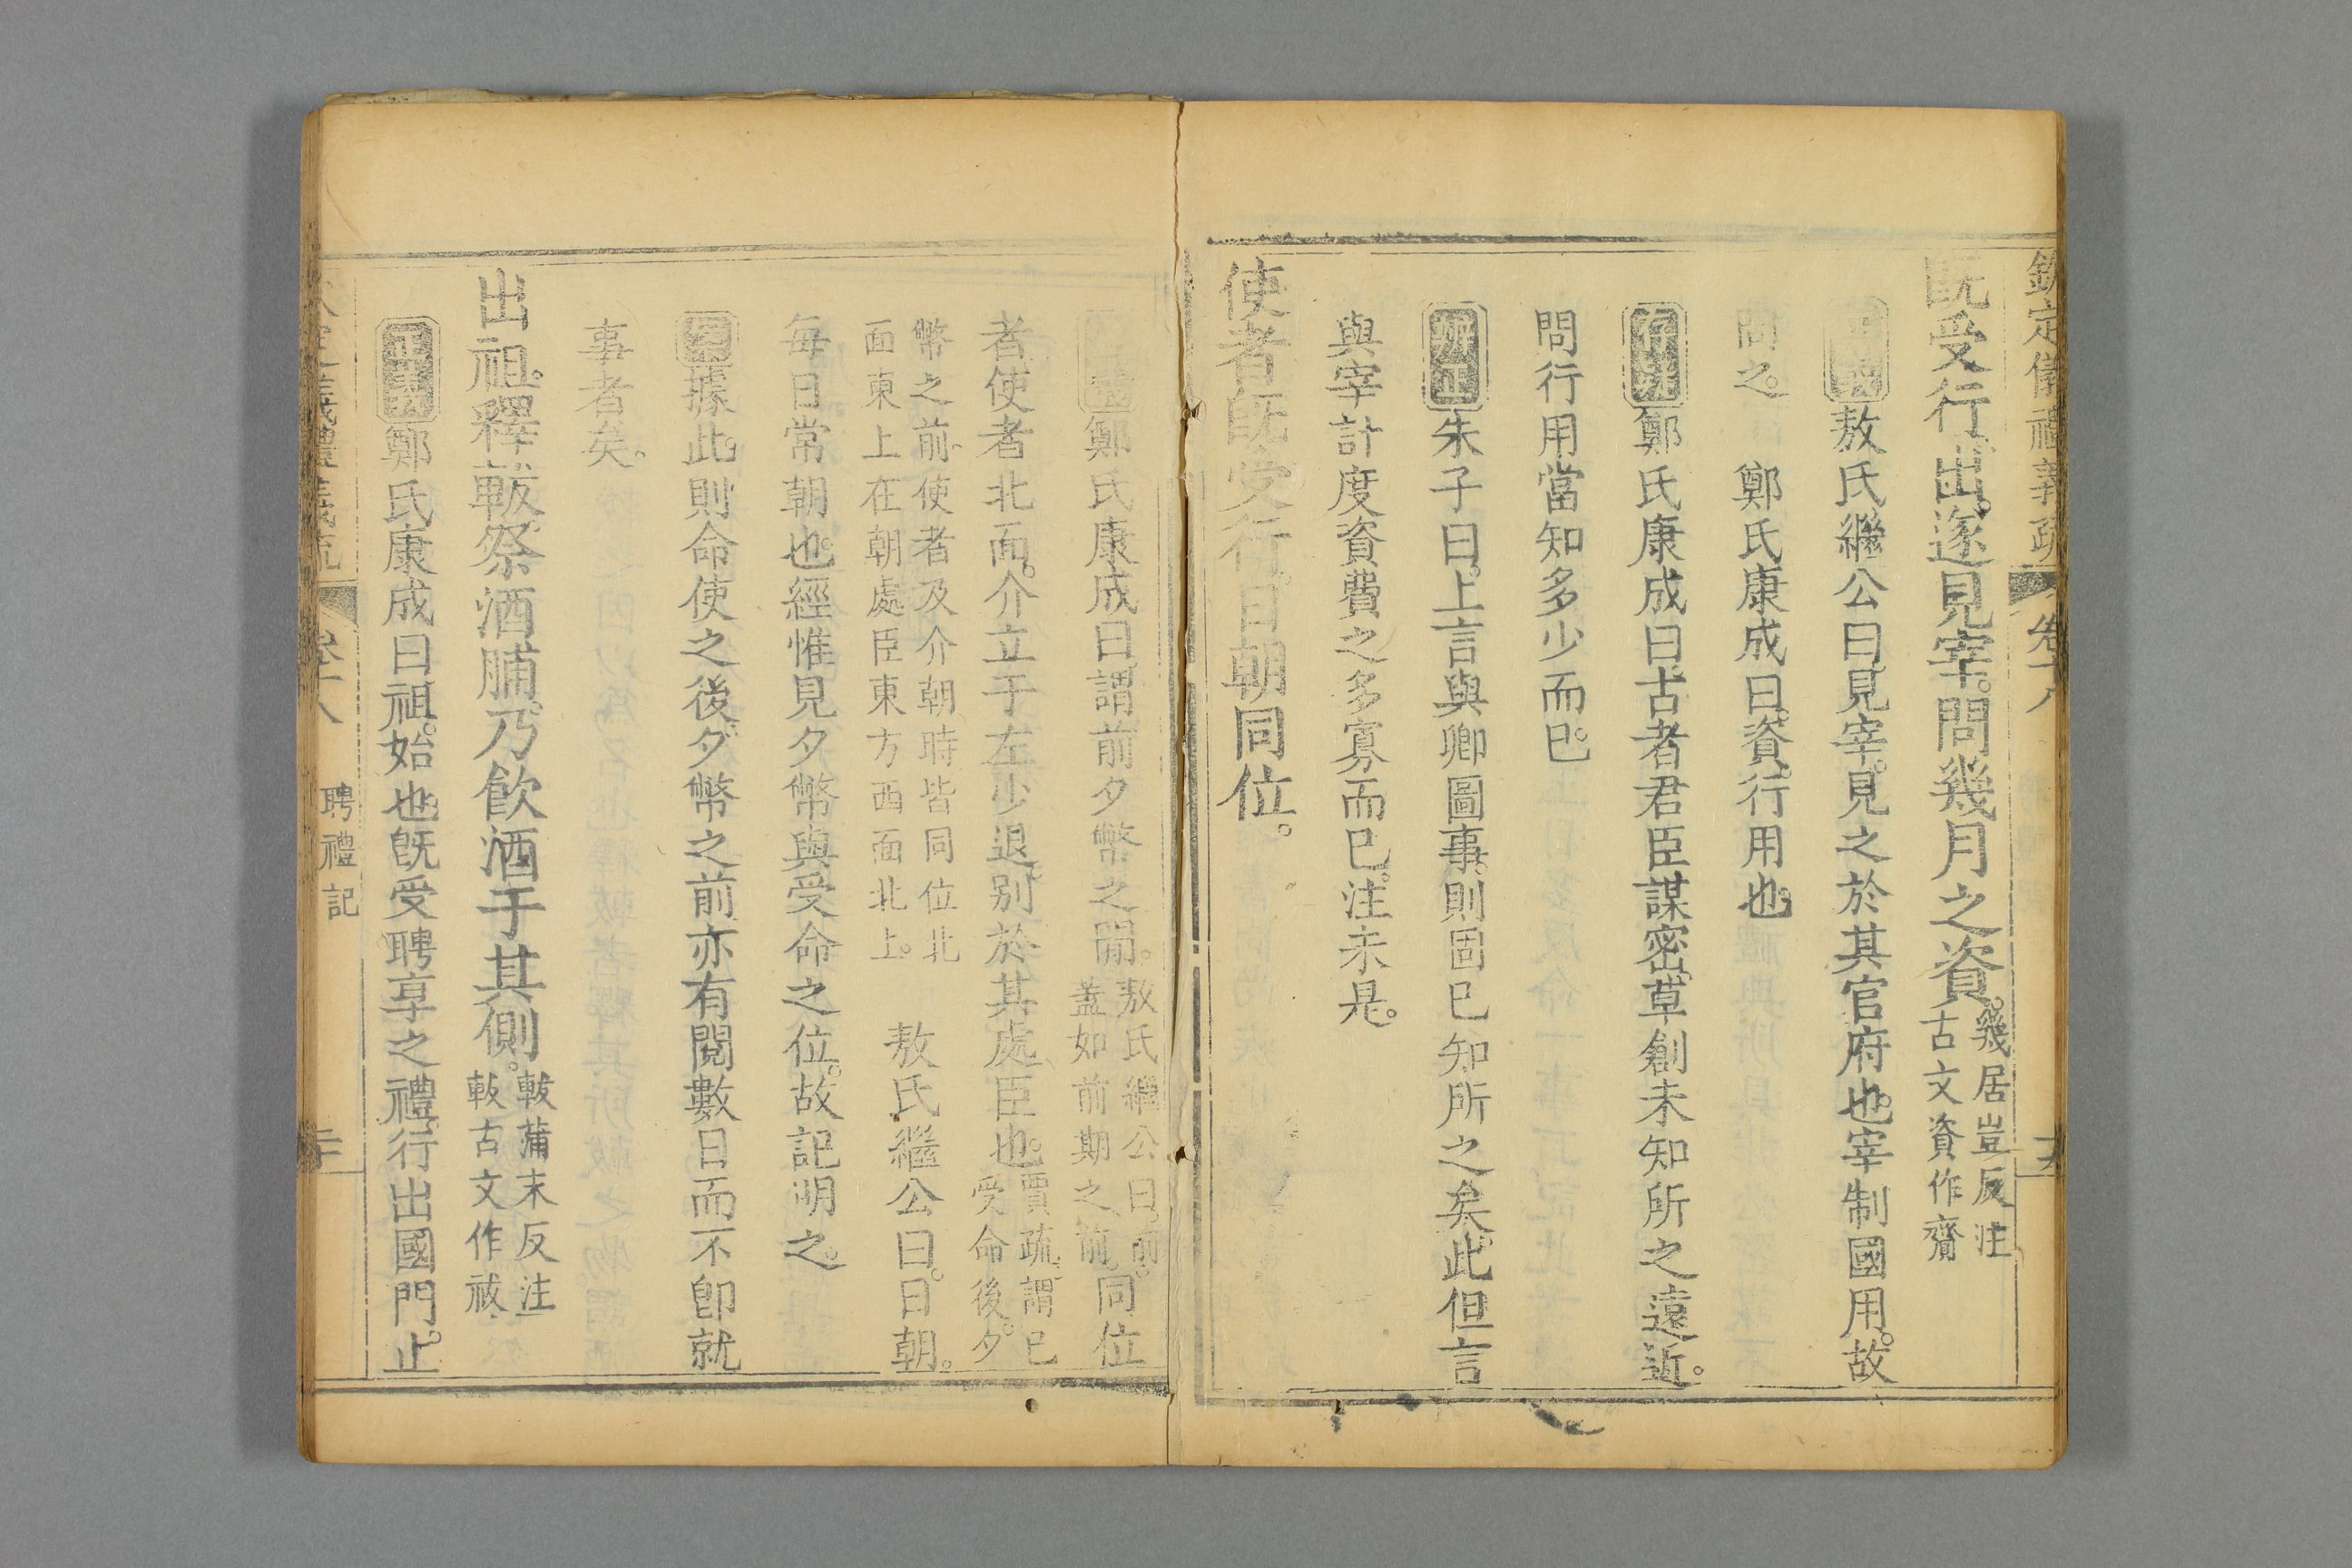 欽定儀禮義疏 卷十八
既受行出遂見宰問幾月之資。幾居豈反注
古文資作齎
正義敖氏繼公曰見宰見之於其官府也宰制國用故
問之。鄭氏康成曰資行用也
存疑鄭氏康成曰古者君臣謀密草創未知所之遠近。
問行用當知多少而已。
辨正朱子曰上言與卿圖事則固已知所之矣此但言
與宰計度資費之多寡而已注未是。
使者既受行日朝同位。
正義鄭氏康成曰謂前夕幣之間。敖氏繼公曰前。
蓋如前期之前。同位
者使者北面。介立于左少退別於其處臣也。賈疏謂已
受命後夕
幣之前使者及介朝時皆同位北
面東上在朝處臣東方西面北上。敖氏繼公曰日朝。
每日常朝也。經惟見夕幣與受命之位。故記明之。
案據此則命使之後夕幣之前亦有閱數日而不卽就
事者矣。
出祖釋軷祭酒脯乃飮酒于其側。軷蒲末反注
軷古文作祓
正義鄭氏康成曰祖始也旣受聘享之禮行出國門止
卷十八 聘禮記